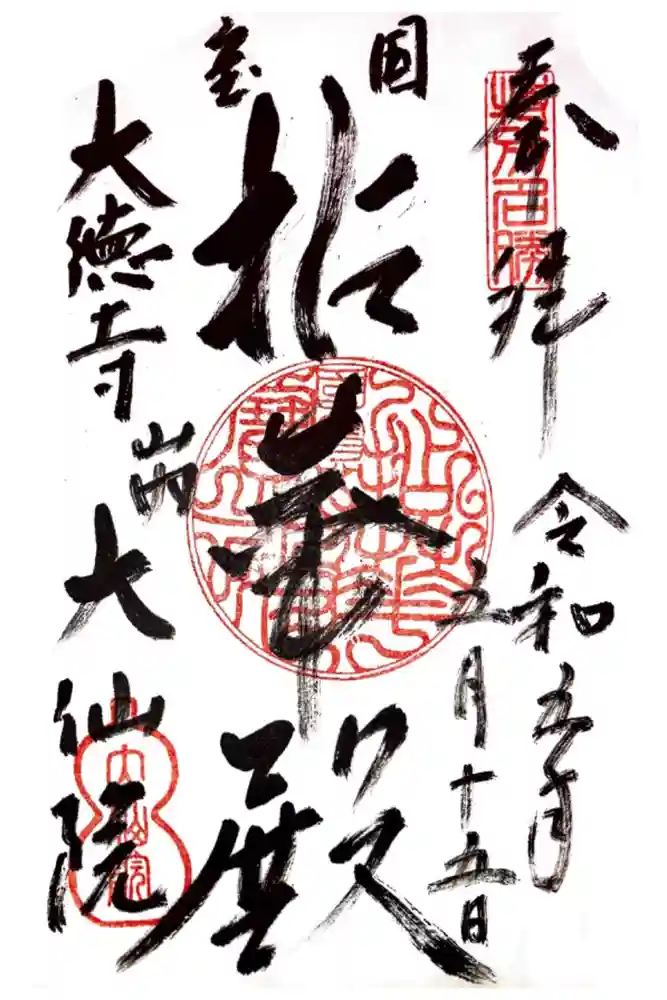 奉拝
特別名勝
令和五年
五月十五日
国宝
拈華殿
大徳寺山内
大仙院
大仙院